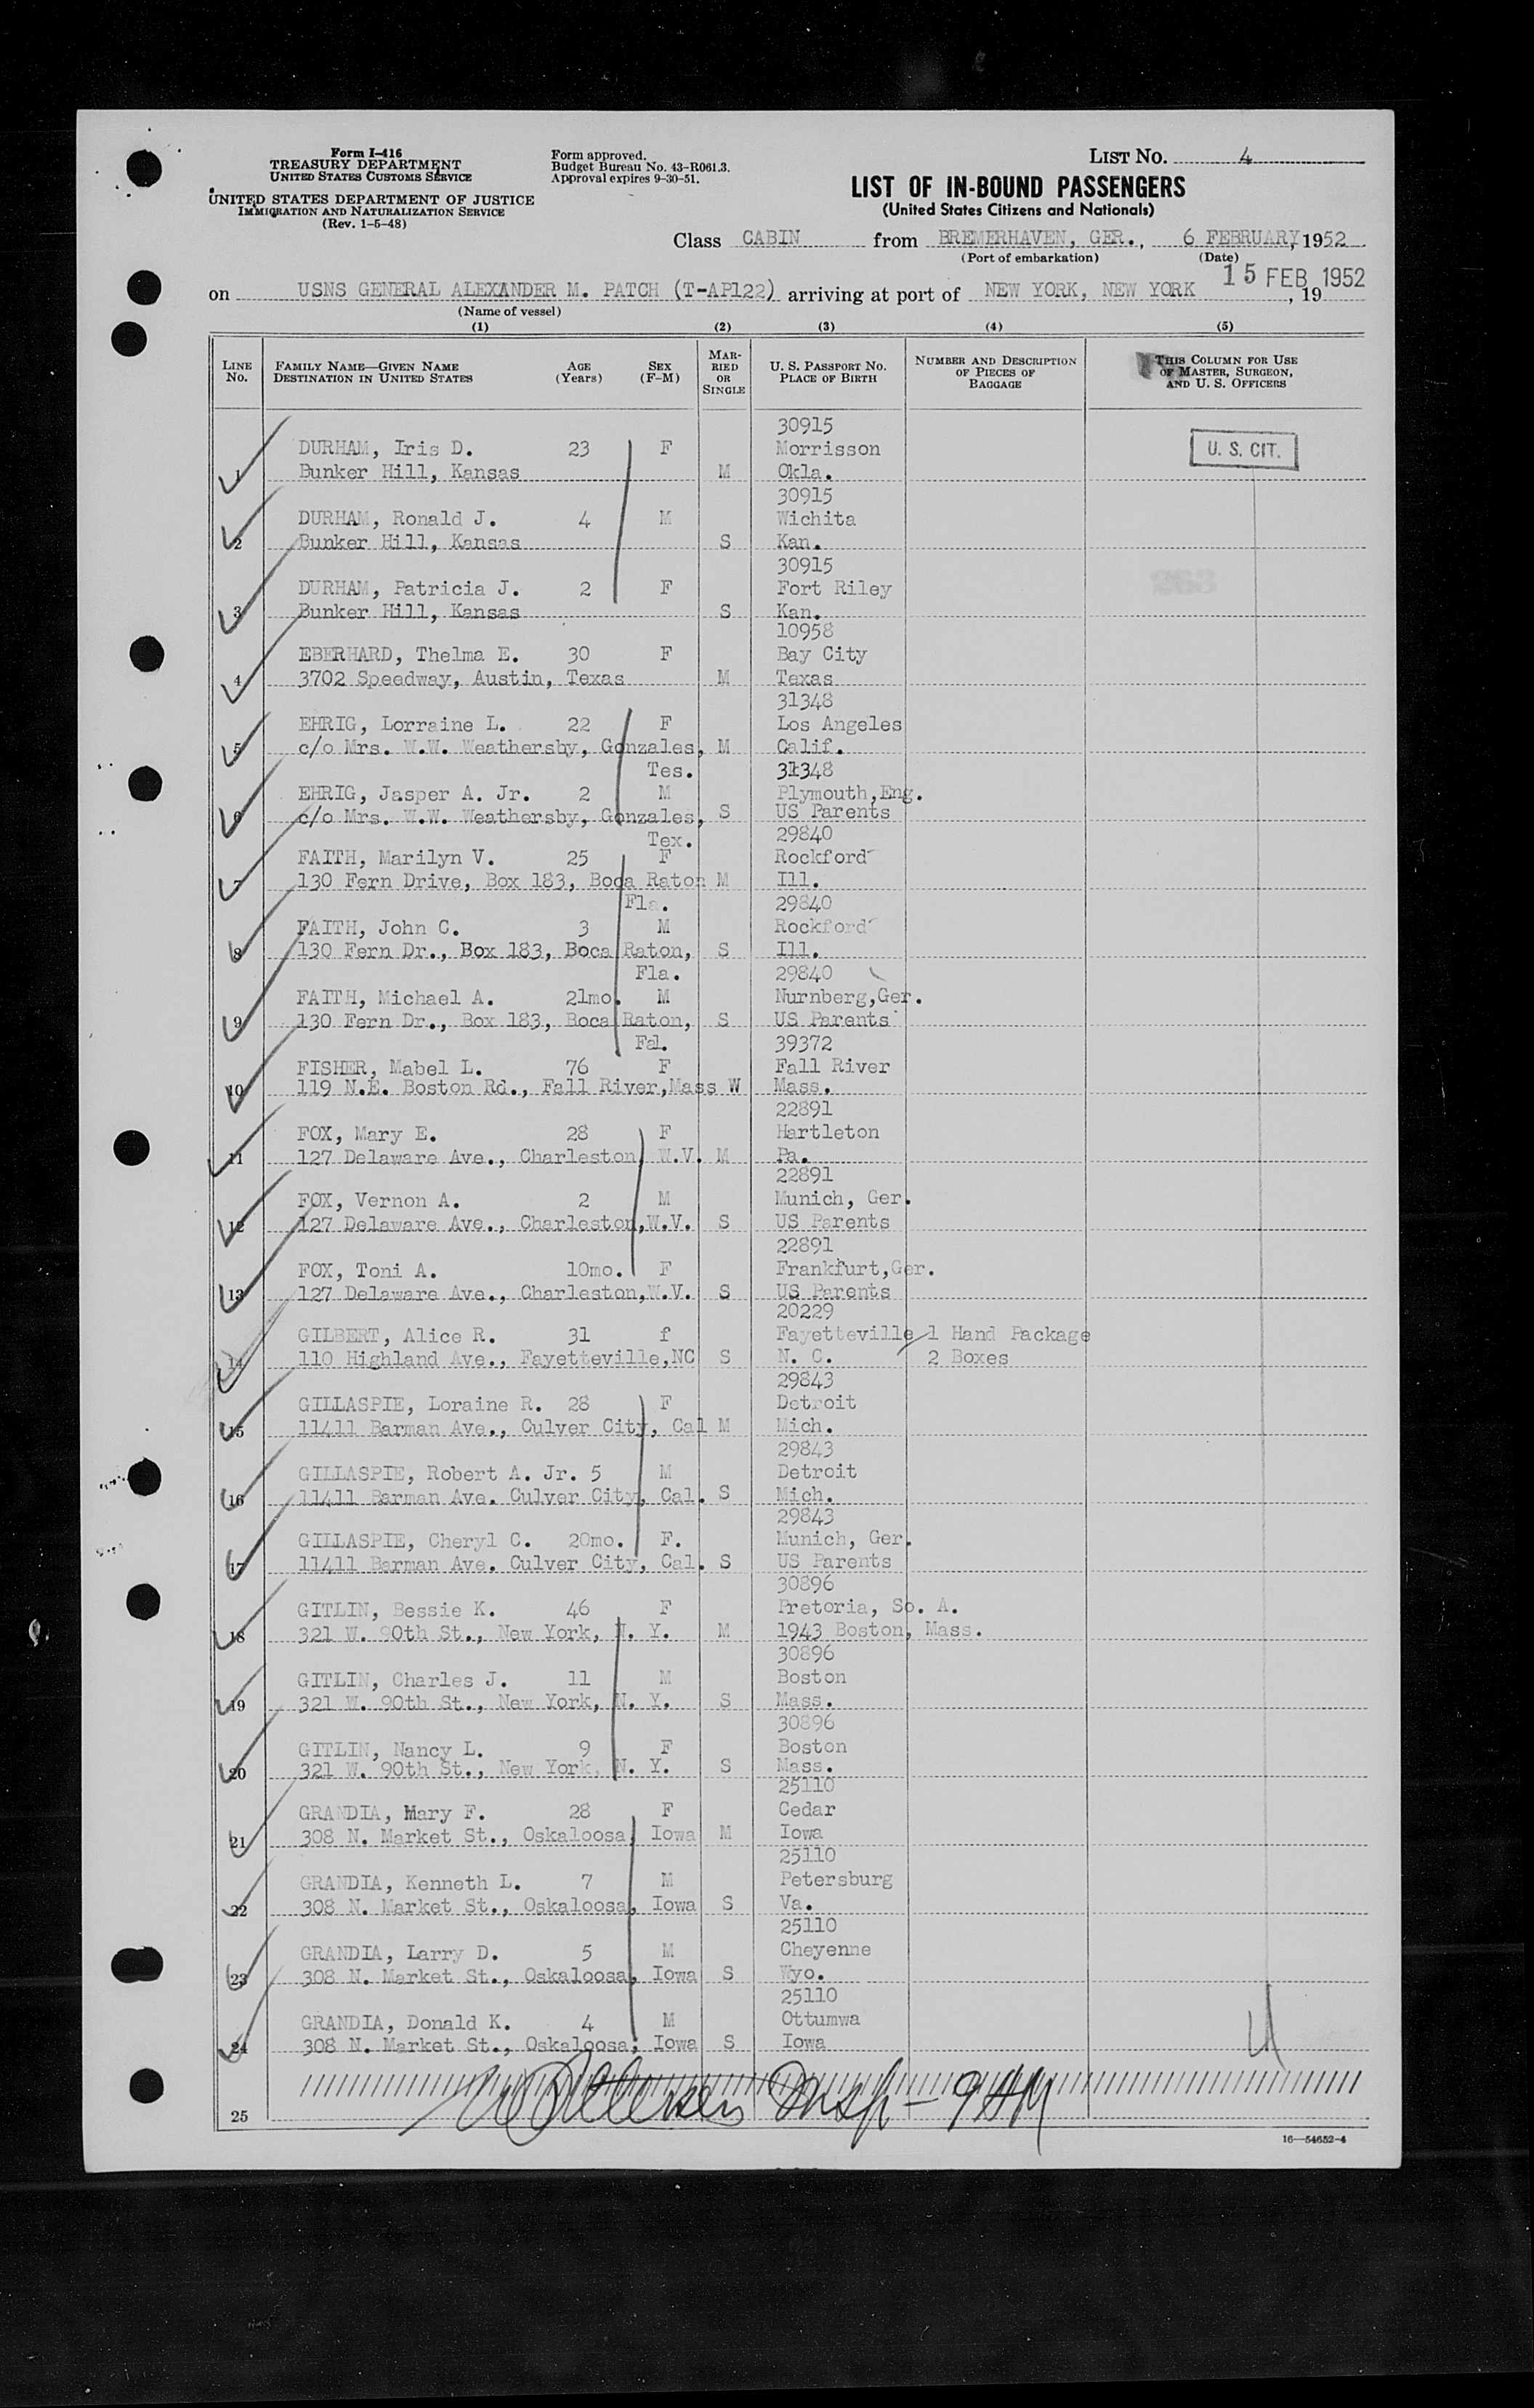 Form I-416
TREASURY DEPARTMENT
UNITED STATES CUSTOMS SERVICE
UNITED STATES DEPARTMENT OF JUSTICE
IMMIGRATION AND NATURALIZATION SERVICE
(Rev. 1-5-48)
Form approved.
Budget Bureau No. 43-R061.3.
Approval expires 9-30-51.
LIST NO. 4
LIST OF IN-BOUND PASSENGERS
(United States Citizens and Nationals)
Class CABIN from BREMERHAVEN, GER., 6 FEBRUARY, 1952
(Port of embarkation) (Date)
on USNS GENERAL ALEXANDER M. PATCH (T-AP122) arriving at port of NEW YORK, NEW YORK 15 FEB 1952, 19
(Name of vessel)
(1) (2) (3) (4) (5)
LINE No. FAMILY NAME—GIVEN NAME DESTINATION IN UNITED STATES AGE (Years) SEX (F-M) MARRIED OR SINGLE U. S. PASSPORT NO. PLACE OF BIRTH NUMBER AND DESCRIPTION OF PIECES OF BAGGAGE THIS COLUMN FOR USE OF MASTER, SURGEON, AND U. S. OFFICERS
30915
DURHAM, Iris D. 23 F Morrisson U. S. CIT.
1 Bunker Hill, Kansas M Okla.
30915
DURHAM, Ronald J. 4 M Wichita
2 Bunker Hill, Kansas S Kan.
30915
DURHAM, Patricia J. 2 F Fort Riley
3 Bunker Hill, Kansas S Kan.
10958
EBERHARD, Thelma E. 30 F Bay City
4 3702 Speedway, Austin, Texas M Texas
31348
EHRIG, Lorraine L. 22 F Los Angeles
5 c/o Mrs. W.W. Weathersby, Gonzales, M Calif.
Tes. 31348
EHRIG, Jasper A. Jr. 2 M Plymouth,Eng.
6 c/o Mrs. W.W. Weathersby, Gonzales, S US Parents
Tex. 29840
FAITH, Marilyn V. 25 F Rockford
7 130 Fern Drive, Box 183, Boca Raton M Ill.
Fla. 29840
FAITH, John C. 3 M Rockford
8 130 Fern Dr., Box 183, Boca Raton, S Ill.
Fla. 29840
FAITH, Michael A. 21mo. M Nurnberg,Ger.
9 130 Fern Dr., Box 183, Boca Raton, S US Parents
Fal. 39372
FISHER, Mabel L. 76 F Fall River
10 119 N.E. Boston Rd., Fall River,Mass W Mass.
22891
FOX, Mary E. 28 F Hartleton
11 127 Delaware Ave., Charleston, W.V. M Pa.
22891
FOX, Vernon A. 2 M Munich, Ger.
12 127 Delaware Ave., Charleston,W.V. S US Parents
22891
FOX, Toni A. 10mo. F Frankfurt,Ger.
13 127 Delaware Ave., Charleston,W.V. S US Parents
20229
GILBERT, Alice R. 31 f Fayetteville 1 Hand Package
14 110 Highland Ave., Fayetteville,NC S N. C. 2 Boxes
29843
GILLASPIE, Loraine R. 28 F Detroit
15 11411 Barman Ave., Culver City, Cal M Mich.
29843
GILLASPIE, Robert A. Jr. 5 M Detroit
16 11411 Barman Ave. Culver City, Cal. S Mich.
29843
GILLASPIE, Cheryl C. 20mo. F. Munich, Ger.
17 11411 Barman Ave. Culver City, Cal. S US Parents
30896
GITLIN, Bessie K. 46 F Pretoria, So. A.
18 321 W. 90th St., New York, N. Y. M 1943 Boston, Mass.
30896
GITLIN, Charles J. 11 M Boston
19 321 W. 90th St., New York, N. Y. S Mass.
30896
GITLIN, Nancy L. 9 F Boston
20 321 W. 90th St., New York, N. Y. S Mass.
25110
GRANDIA, Mary F. 28 F Cedar
21 308 N. Market St., Oskaloosa, Iowa M Iowa
25110
GRANDIA, Kenneth L. 7 M Petersburg
22 308 N. Market St., Oskaloosa, Iowa S Va.
25110
GRANDIA, Larry D. 5 M Cheyenne
23 308 N. Market St., Oskaloosa, Iowa S Wyo.
25110
GRANDIA, Donald K. 4 M Ottumwa
24 308 N. Market St., Oskaloosa, Iowa S Iowa
Insp - 9 AM
25
16—54652-4